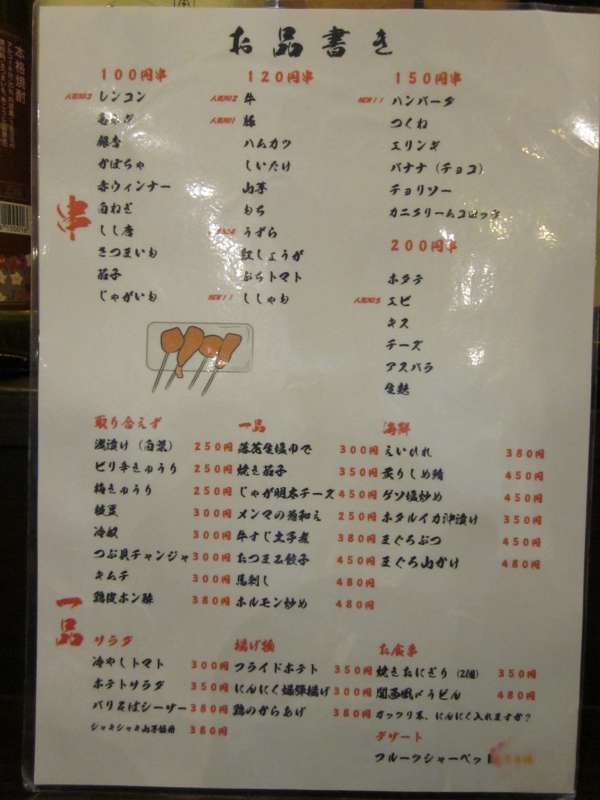 お品書き
100円串
人気NO3 レンコン
玉ネギ
銀杏
かぼちゃ
赤ウィンナー
白ねぎ
しし唐
さつまいも
茄子
じゃがいも
120円串
人気NO2 牛
人気NO1 豚
ハムカツ
しいたけ
山芋
もち
うずら
紅しょうが
ぷちトマト
NEW!! ししゃも
150円串
NEW!! ハンバーグ
つくね
エリンギ
バナナ(チョコ)
チョリソー
カニクリームコロッケ
200円串
ホタテ
人気NO5 エビ
キス
チーズ
アスパラ
生麩
串
取り合えず
浅漬け(白菜) 250円
ピリ辛きゅうり 250円
梅きゅうり 250円
枝豆 300円
冷奴 300円
つぶ貝チャンジャ 300円
キムチ 300円
鶏皮ポン酢 380円
一品
落花生塩ゆで 300円
焼き茄子 350円
じゃが明太チーズ 450円
メンマの葱和え 250円
牛すじ土手煮 380円
たつま石餃子 450円
馬刺し 480円
ホルモン炒め 480円
海鮮
えいひれ 380円
炙りしめ鯖 450円
ゲソ塩炒め 450円
ホタルイカ沖漬け 350円
まぐろぶつ 450円
まぐろ山かけ 480円
一品
サラダ
冷やしトマト 300円
ポテトサラダ 350円
パリねばシーザー 380円
シャキシャキ山芋 380円
揚げ物
フライドポテト 350円
にんにく爆弾揚げ 300円
鶏のからあげ 380円
お食事
焼きおにぎり(2個) 350円
関西風〆うどん 480円
ガッツリ系、にんにく入れますか?
デザート
フルーツシャーベット
本格焼酎